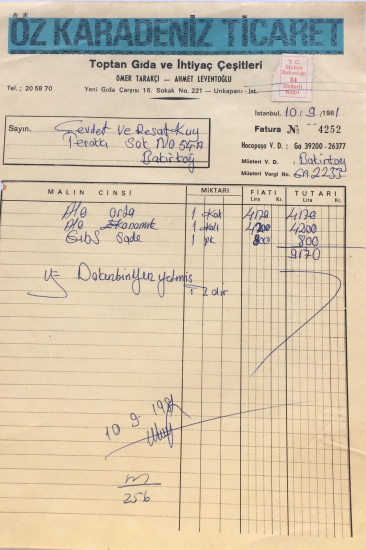 ÖZ KARADENİZ TİCARET
Toptan Gıda ve İhtiyaç Çeşitleri
ÖMER TARAKÇI — AHMET LEVENTOĞLU
Tel.: 20 58 70
Yeni Gıda Çarşısı 16. Sokak No. 221 — Unkapanı - İst.
T. C.
Maliye
Bakanlığı
Değerli
Kağıt
İstanbul, 10/9/1981
Fatura No 4252
Hocapaşa V. D.: Ga 39200 - 26377
Müşteri V. D. Bakırköy
Müşteri Vergi No. GA 2233
Sayın, Cevdet ve Reşat Kuy
Terakki Sok No 54A
Bakırköy
MALIN CİNSİ MİKTARI FİATI TUTARI
Lira Kr. Lira Kr.
orta 1 koli 4170 4170
Ekonomik 1 koli 4200 4200
Gibs Sade 1 pk 800 800
9170
yetmiş
1 Z dır
10 9 1981
256